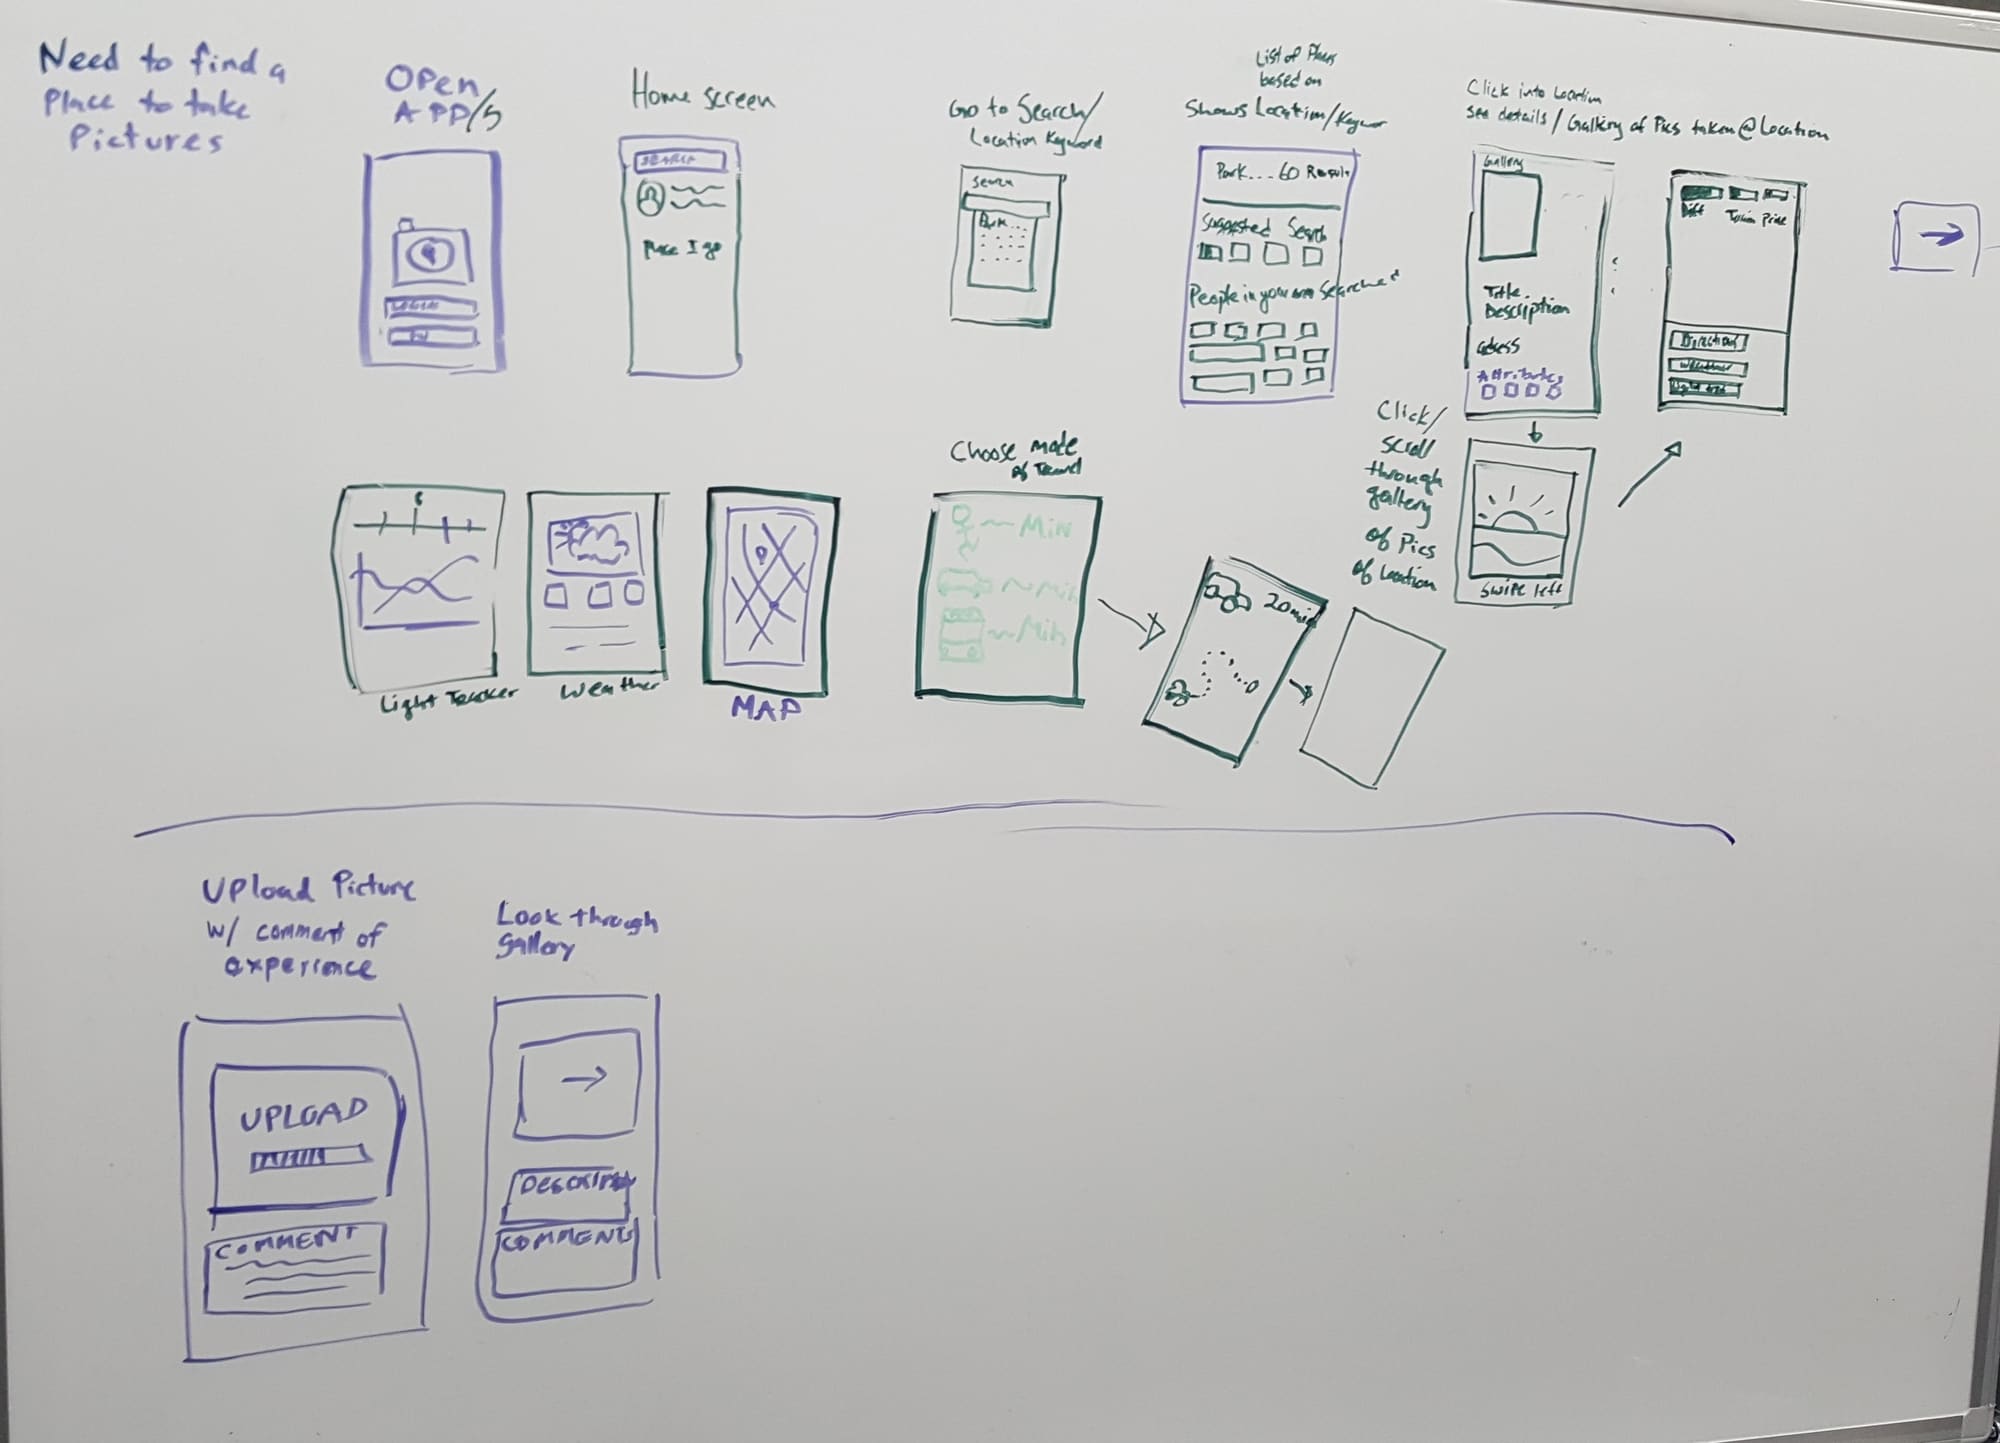 Need to find a
Place to take
Pictures
OPen
APP/s
Home screen
SEARCH
Place I go
Go to Search/
Location Keyword
Search
Park...
List of Places
based on
Shows Location/Keywor
Park... 60 Result
Suggested Search
People in your area Searched
Click into Location
See details / Gallery of Pics taken @ Location
Gallery
Title
Description
Attributes
Price
Directions
Weather
Click/
scroll
through
gallery
of Pics
of Location
Swipe left
Choose mode
of Travel
~Min
~Min
~Min
20min
Light Tracker
Weather
MAP
UPload Picture
w/ comment of
experience
UPLOAD
COMMENT
Look through
gallery
COMMENTS